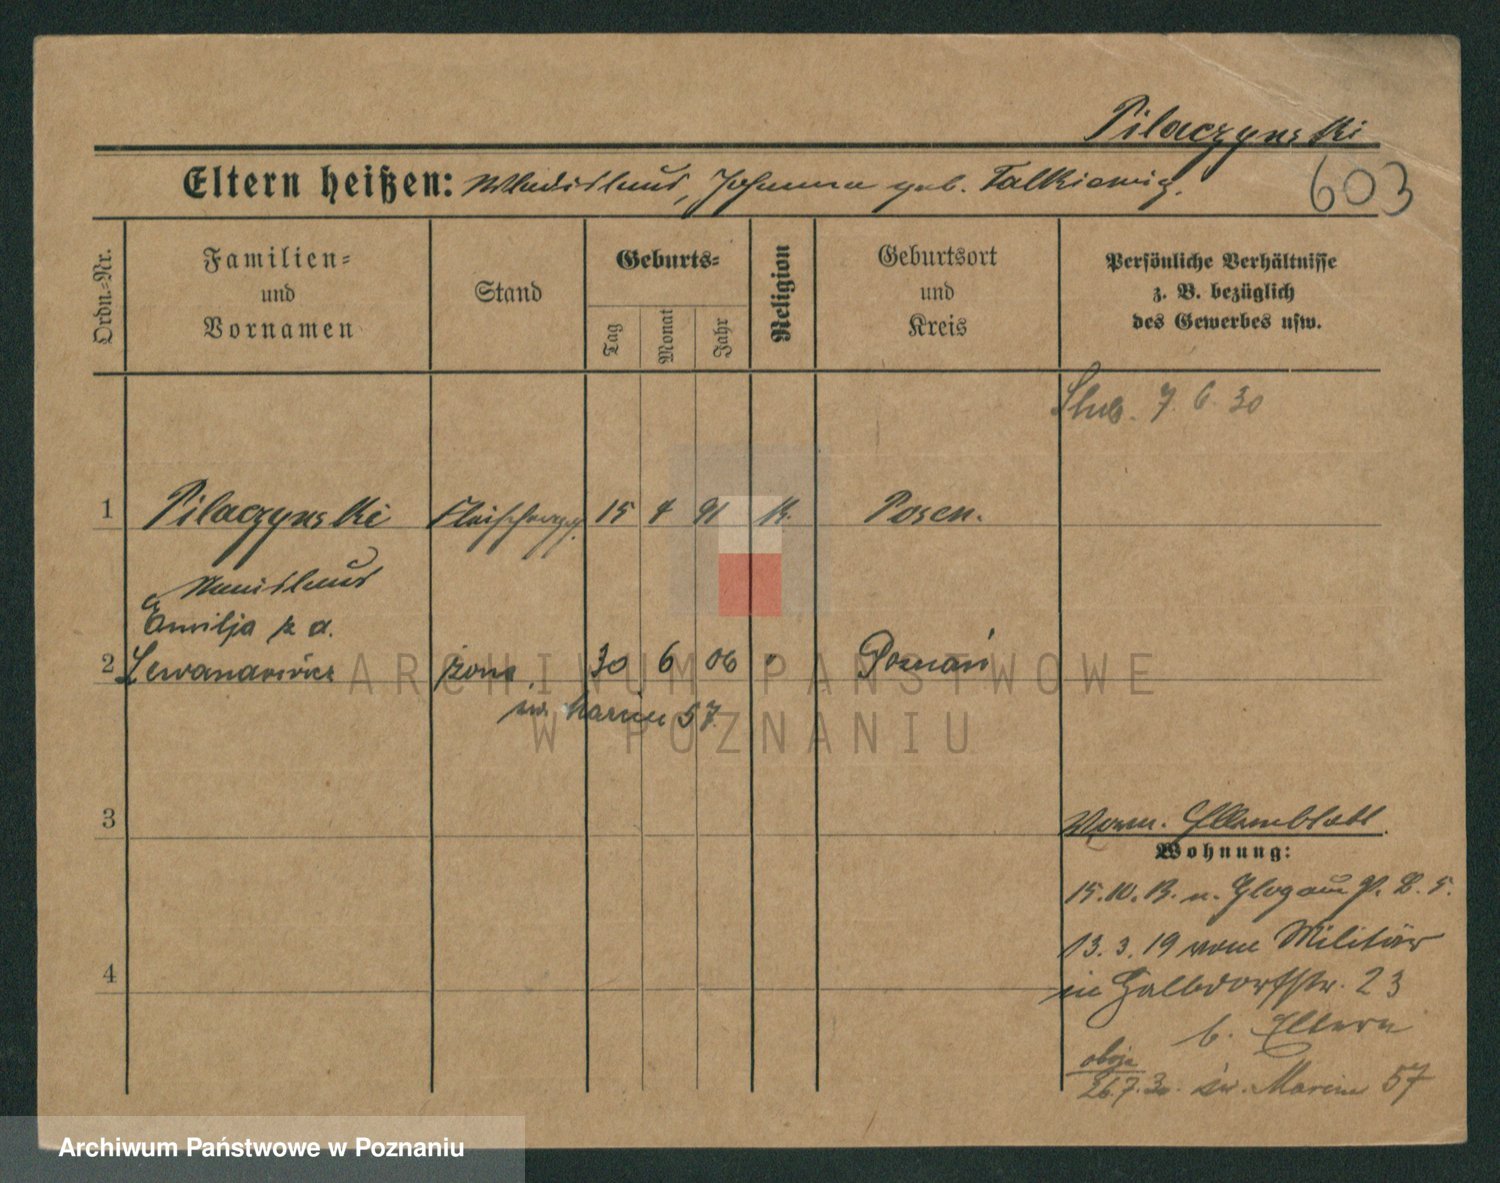 Pilaczynski
Eltern heißen: Wladislaus, Johanna geb. Falkiewicz.
603
Ordn.=Nr.
Familien=
und
Vornamen
Stand
Geburts=
Tag
Monat
Jahr
Religion
Geburtsort
und
Kreis
Persönliche Verhältnisse
z. B. bezüglich
des Gewerbes usw.
Ślub. 7. 6. 30
1 Pilaczynski 15 4 91 K. Posen.
Stanislaus
Emilja z d.
2 Lewandowicz żona 30 6 06 " Poznań
św. Marcin 57.
3
Vorm. Elternblatt.
Wohnung:
15.10.13. n. Glogau
13.3.19 vom Militär
in Halbdorfstr. 23
b. Eltern
4
oboje
26.7.30. św. Marcin 57
ARCHIWUM PAŃSTWOWE
W POZNANIU
Archiwum Państwowe w Poznaniu